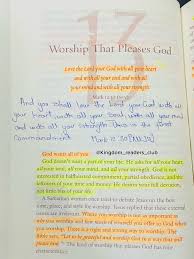 17
Worship That Pleases God
Love the Lord your God with all your heart
and with all your soul and with all
your mind and with all your strength.
Mark 12:30
And you shall love the Lord your God with all
your heart, with all your soul, with all your mind
and with all your strength. This is the first
Commandment.
Mark 12:30
@kingdom_readers_club
God wants all of you.
God doesn't want a part of your life. He asks for all your heart,
all your soul, all your mind, and all your strength. God is not
interested in halfhearted commitment, partial obedience, and the
leftovers of your time and money. He desires your full devotion,
not little bits of your life.
A Samaritan woman once tried to debate Jesus on the best
time, place, and style for worship. Jesus replied that these external
issues
Where you worship is not as important as
why you worship and how much of yourself you offer to God when
you worship. There is a right and wrong way to worship. The
Bible says, "Let us be grateful and worship God in a way that will
please him."
The kind of worship that pleases God has four
characteristics: